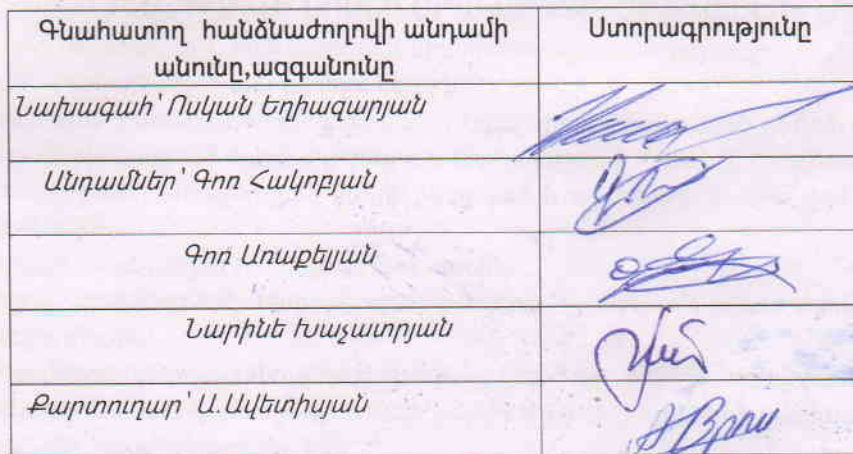 Գնահատող հանձնաժողովի անդամի
անունը,ազգանունը
Ստորագրությունը
Նախագահ՝ Ոսկան Եղիազարյան
Անդամներ՝ Գոռ Հակոբյան
Գոռ Առաքելյան
Նարինե Խաչատրյան
Քարտուղար՝ Ա.Ավետիսյան